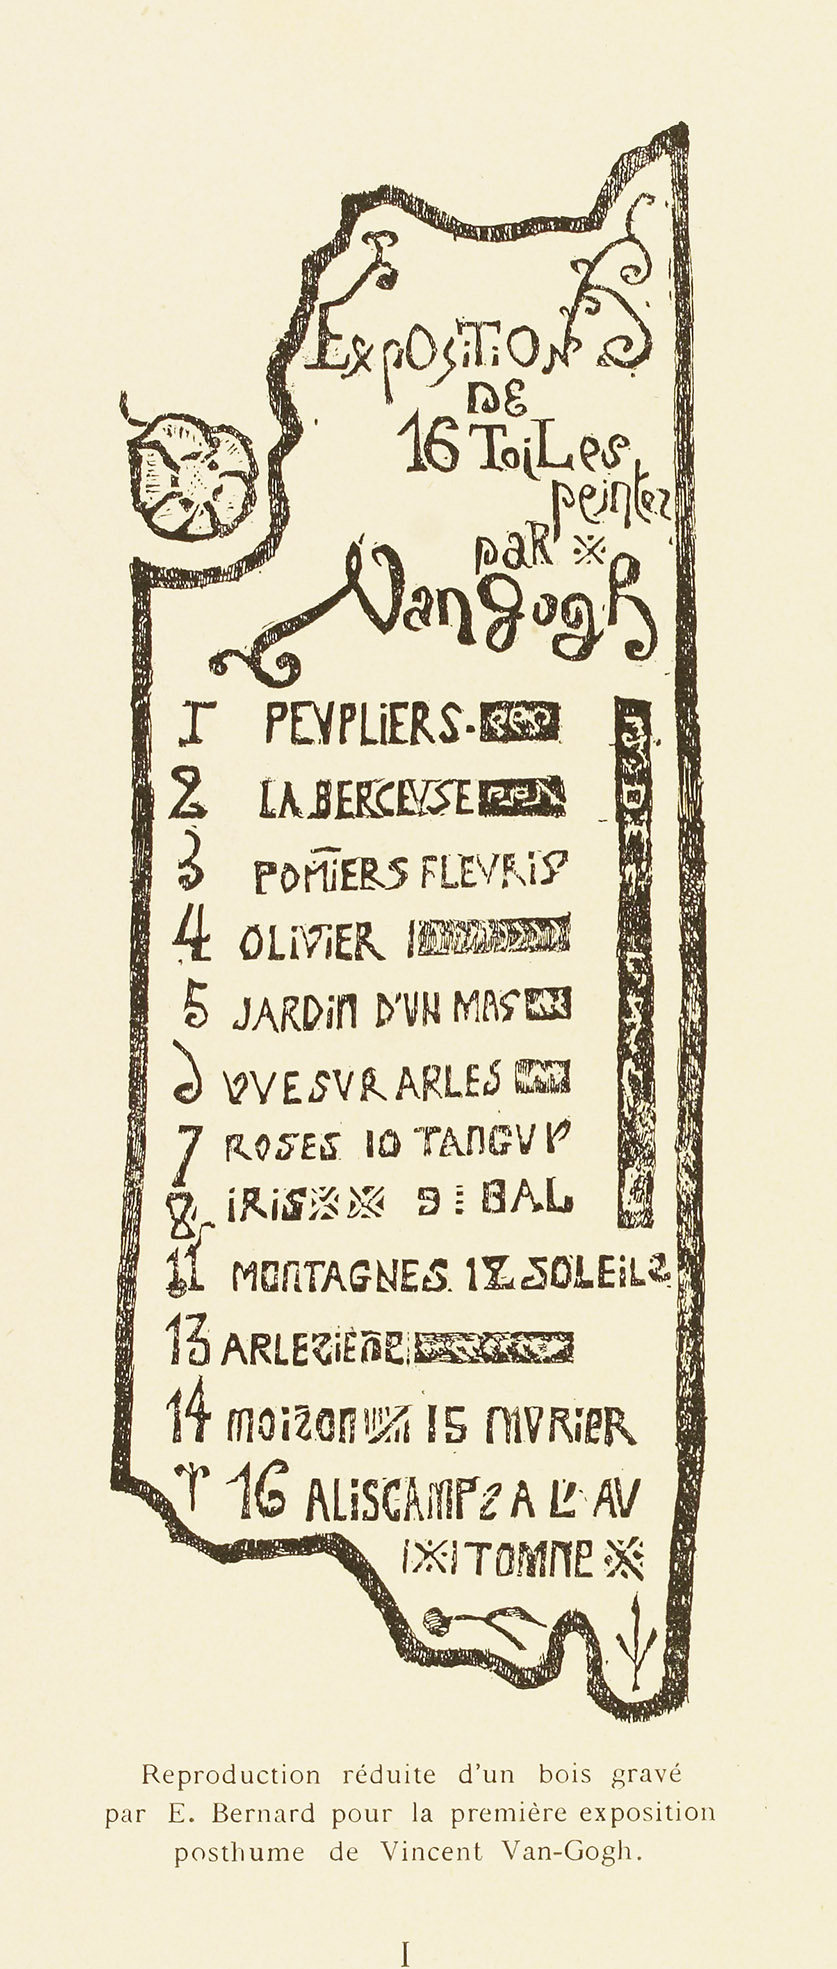 ExpOSiTiON
DE
16 ToiLes
peintes
paR
Van gogh
1 PEVPLiERS.
2 LA BERCEVSE
3 POM̄IERS FLEVRIS
4 OLIVIER
5 JARDIN D'UN MAS
6 VVE SVR ARLES
7 ROSES 10 TANGVY
8 IRIS 9 BAL
11 MONTAGNES. 12 SOLEILS
13 ARLEZIENE
14 MOIZON 15 MVRIER
16 ALISCAMPS A L' AV
TOMNE
Reproduction réduite d'un bois gravé
par E. Bernard pour la première exposition
posthume de Vincent Van-Gogh.
I